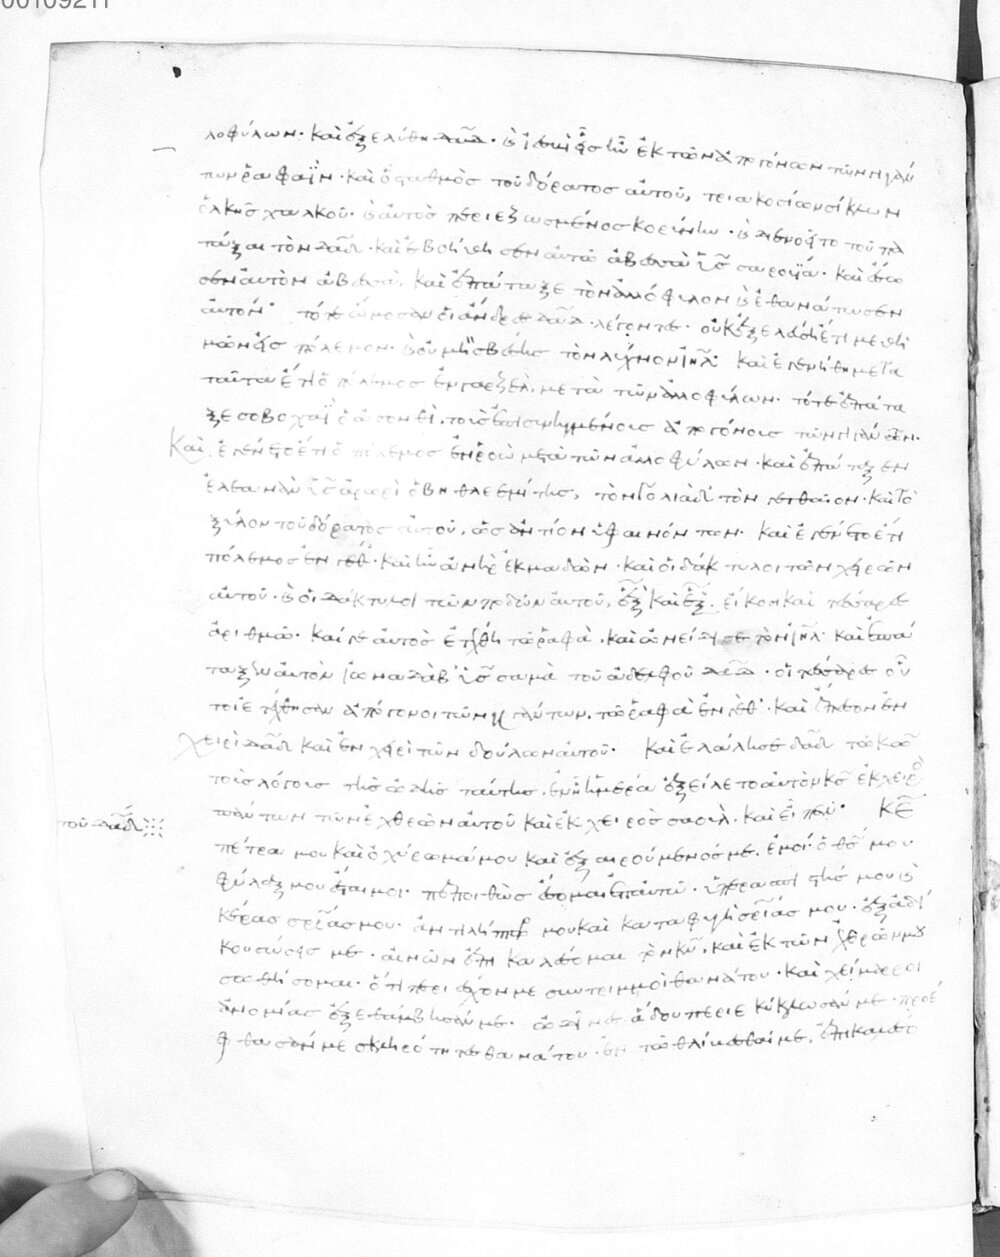 00109211
λοφύλων· καὶ ἐξελύθη δαδ· καὶ ἰεσβὶ ὃς ἦν ἐκ τῶν ἀπογόνων τῶν γιγάν
των ραφαΐν· καὶ ὁ σταθμὸς τοῦ δόρατος αὐτοῦ, τριακοσίων σίκλων
ὁλκῆς χαλκοῦ· καὶ αὐτὸς περιεζωσμένος κορύνην· καὶ διενοεῖτο τοῦ πα
τάξαι τὸν δαδ· καὶ ἐβοήθησεν αὐτῶ ἀβεσσὰ υἱσ σαρουΐα· καὶ ἔσω
σεν αὐτὸν ἀβεσσά· καὶ ἐπάταξε τὸν ἀλλόφυλον καὶ ἐθανάτωσεν
αὐτόν· τότε ὤμοσαν οἱ ἄνδρες δαδ· λέγοντες· οὐκ ἐξελεύση ἔτι μεθ
ἡμῶν εἰς πόλεμον· καὶ οὐ μὴ σβέσης τὸν λύχνον ιηλ· καὶ ἐγενήθη μετὰ
ταῦτα ἔτι ὁ πόλεμος ἐν γαζὲθ, μετὰ τῶν ἀλλοφύλων· τότε ἐπάτα
ξε σοβοχαῒ ὁ ἀσουθὶ, τοὺς ἐπισυνηγμένους ἀπογόνους τῶν γιγάντων·
Καὶ ἐγένετο ἔτι ὁ πόλεμος ἐν ροὼ μετὰ τῶν ἀλλοφύλων· καὶ ἐπάταξεν
ἐλεανὰν υἱσ ἀρωρὶ ὁ βηθλεεμίτης, τὸν γολιὰθ τὸν γεθθαῖον· καὶ τὸ
ξύλον τοῦ δόρατος αὐτοῦ, ὡς ἀντίον ὑφαινόντων· καὶ ἐγένετο ἔτι
πόλεμος ἐν γέθ· καὶ ἦν ἀνὴρ ἐκ μαδὼν· καὶ οἱ δάκτυλοι τῶν χειρῶν
αὐτοῦ· καὶ οἱ δάκτυλοι τῶν ποδῶν αὐτοῦ, ἓξ καὶ ἓξ· εἴκοσι καὶ τέσσαρες
ἀριθμῶ· καί γε αὐτὸς ἐτέχθη τῶ ραφὰ· καὶ ὠνείδισε τὸν ιηλ· καὶ ἐπά
ταξεν αὐτὸν ἰωναδὰβ υἱσ σαμὰ τοῦ ἀδελφοῦ δαδ· οἱ τέσσαρες οὗ
τοι ἐτέχθησαν ἀπόγονοι τῶν γιγάντων, τῶ ραφὰ ἐν γέθ· καὶ ἔπεσον ἐν
χειρὶ δαδ καὶ ἐν χειρὶ τῶν δούλων αὐτοῦ· καὶ ἐλάλησε δαδ τῶ κω
τοὺς λόγους τῆς ὠδῆς ταύτης, ἐν ἡ ἡμέρα ἐξείλετο αὐτὸν κσ ἐκ χειρὸς
πάντων τῶν ἐχθρῶν αὐτοῦ καὶ ἐκ χειρὸς σαοὺλ· καὶ εἶπεν· ΚΕ
τοῦ δαδ
πέτρα μου καὶ ὀχύρωμά μου καὶ ἐξαιρούμενός με. ἐμοὶ· ὁ θσ μου
φύλαξ μου ἔσται μοι· πεποιθὼς ἔσομαι ἐπ᾽ αὐτῶ· ὑπερασπιστής μου καὶ
κέρας σριας μου· ἀντιλήπτωρ μου καὶ καταφυγὴ σριας μου· ἐξ ἀδί
κου σώσεις με· αἰνῶν ἐπικαλέσομαι τὸν κν, καὶ ἐκ τῶν ἐχθρῶν μου
σωθήσομαι· ὅτι περιέσχον με συντριμμοὶ θανάτου· καὶ χείμαρροι
ἀνομίας ἐξεθάμβησάν με· ὠδῖνες ἅδου περιεκύκλωσάν με· προέ
φθασάν με σκληρότητες θανάτου· ἐν τῶ θλίβεσθαί με, ἐπικαλέσο